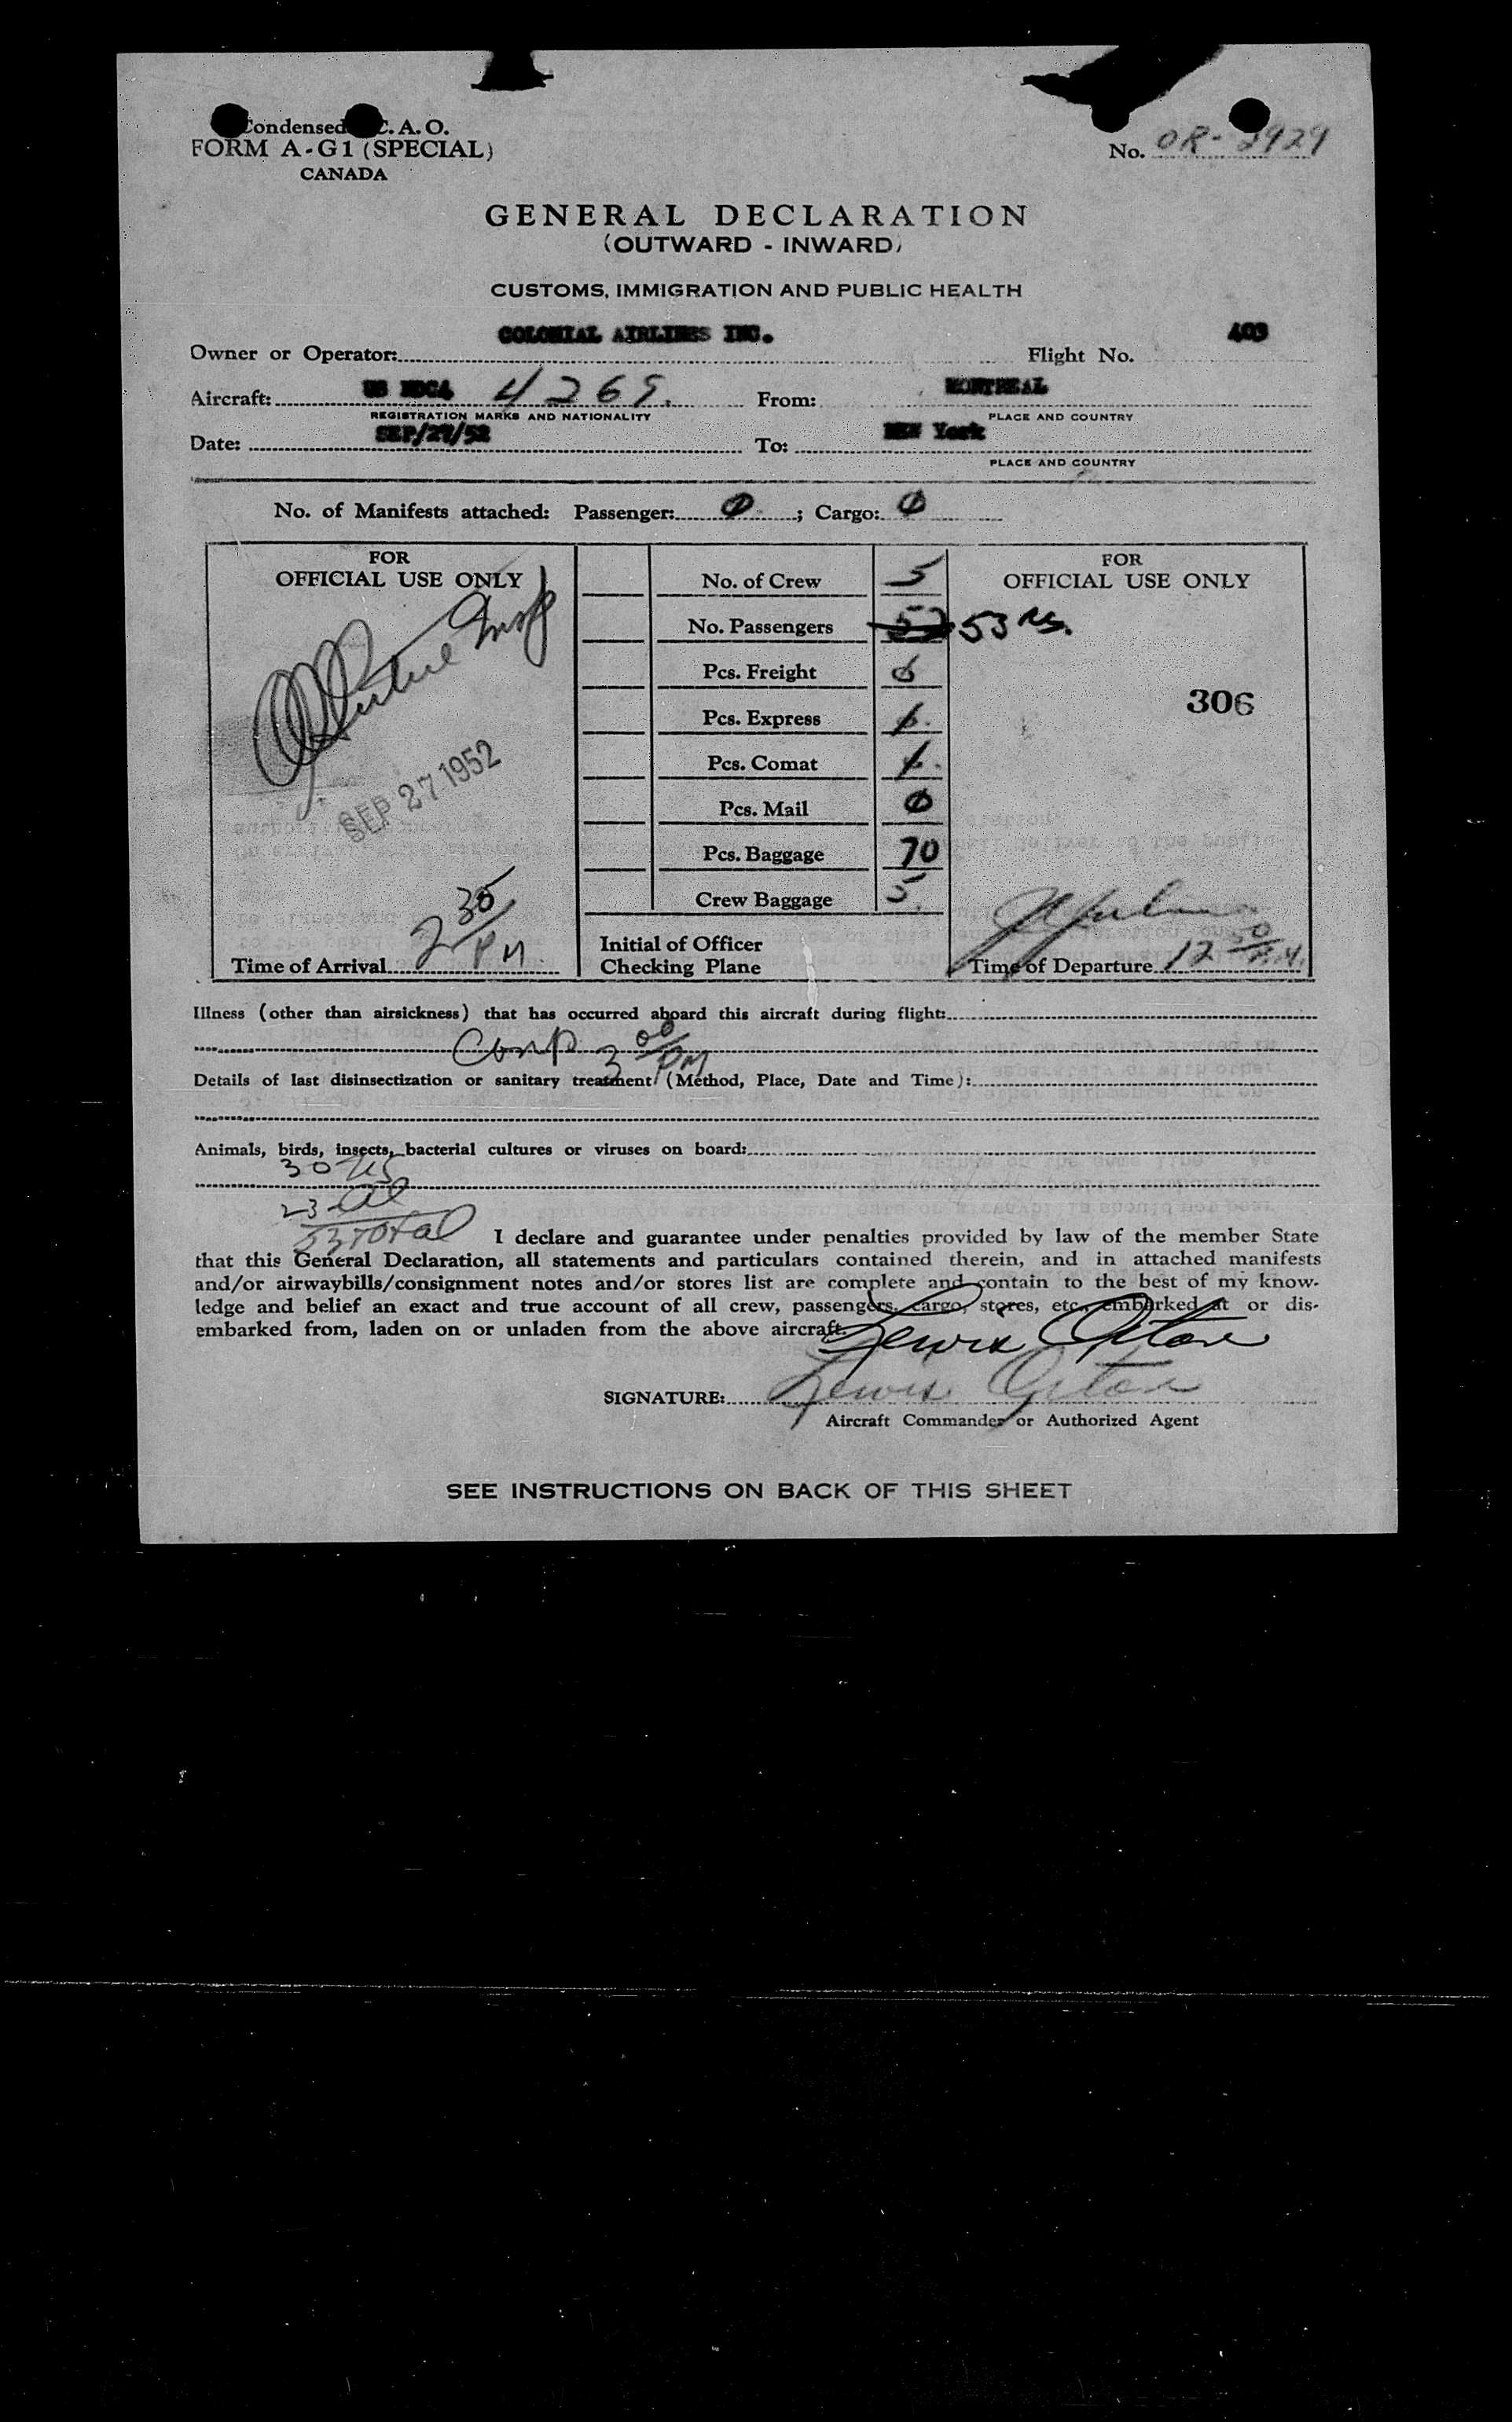 Condensed I.C.A.O.
FORM A-G1 (SPECIAL)
CANADA
No. OR-3929
GENERAL DECLARATION
(OUTWARD - INWARD)
CUSTOMS, IMMIGRATION AND PUBLIC HEALTH
Owner or Operator: COLONIAL AIRLINES INC. Flight No. 403
Aircraft: US NDC4 4265. From: MONTREAL
REGISTRATION MARKS AND NATIONALITY PLACE AND COUNTRY
Date: SEP/27/52 To: NEW York
PLACE AND COUNTRY
No. of Manifests attached: Passenger: 0; Cargo: 0
FOR
OFFICIAL USE ONLY
SEP 27 1952
Time of Arrival 2 35/PM
No. of Crew 5
No. Passengers 53
Pcs. Freight 0
Pcs. Express
Pcs. Comat
Pcs. Mail 0
Pcs. Baggage 70
Crew Baggage 5.
Initial of Officer
Checking Plane
FOR
OFFICIAL USE ONLY
306
Time of Departure 12
Illness (other than airsickness) that has occurred aboard this aircraft during flight:
Comp 3 00/PM
Details of last disinsectization or sanitary treatment (Method, Place, Date and Time):
Animals, birds, insects, bacterial cultures or viruses on board:
30 US
23 al
53 Total
I declare and guarantee under penalties provided by law of the member State
that this General Declaration, all statements and particulars contained therein, and in attached manifests
and/or airwaybills/consignment notes and/or stores list are complete and contain to the best of my know-
ledge and belief an exact and true account of all crew, passengers, cargo, stores, etc., embarked at or dis-
embarked from, laden on or unladen from the above aircraft.
Lewis Orton
SIGNATURE: Lewis Orton
Aircraft Commander or Authorized Agent
SEE INSTRUCTIONS ON BACK OF THIS SHEET